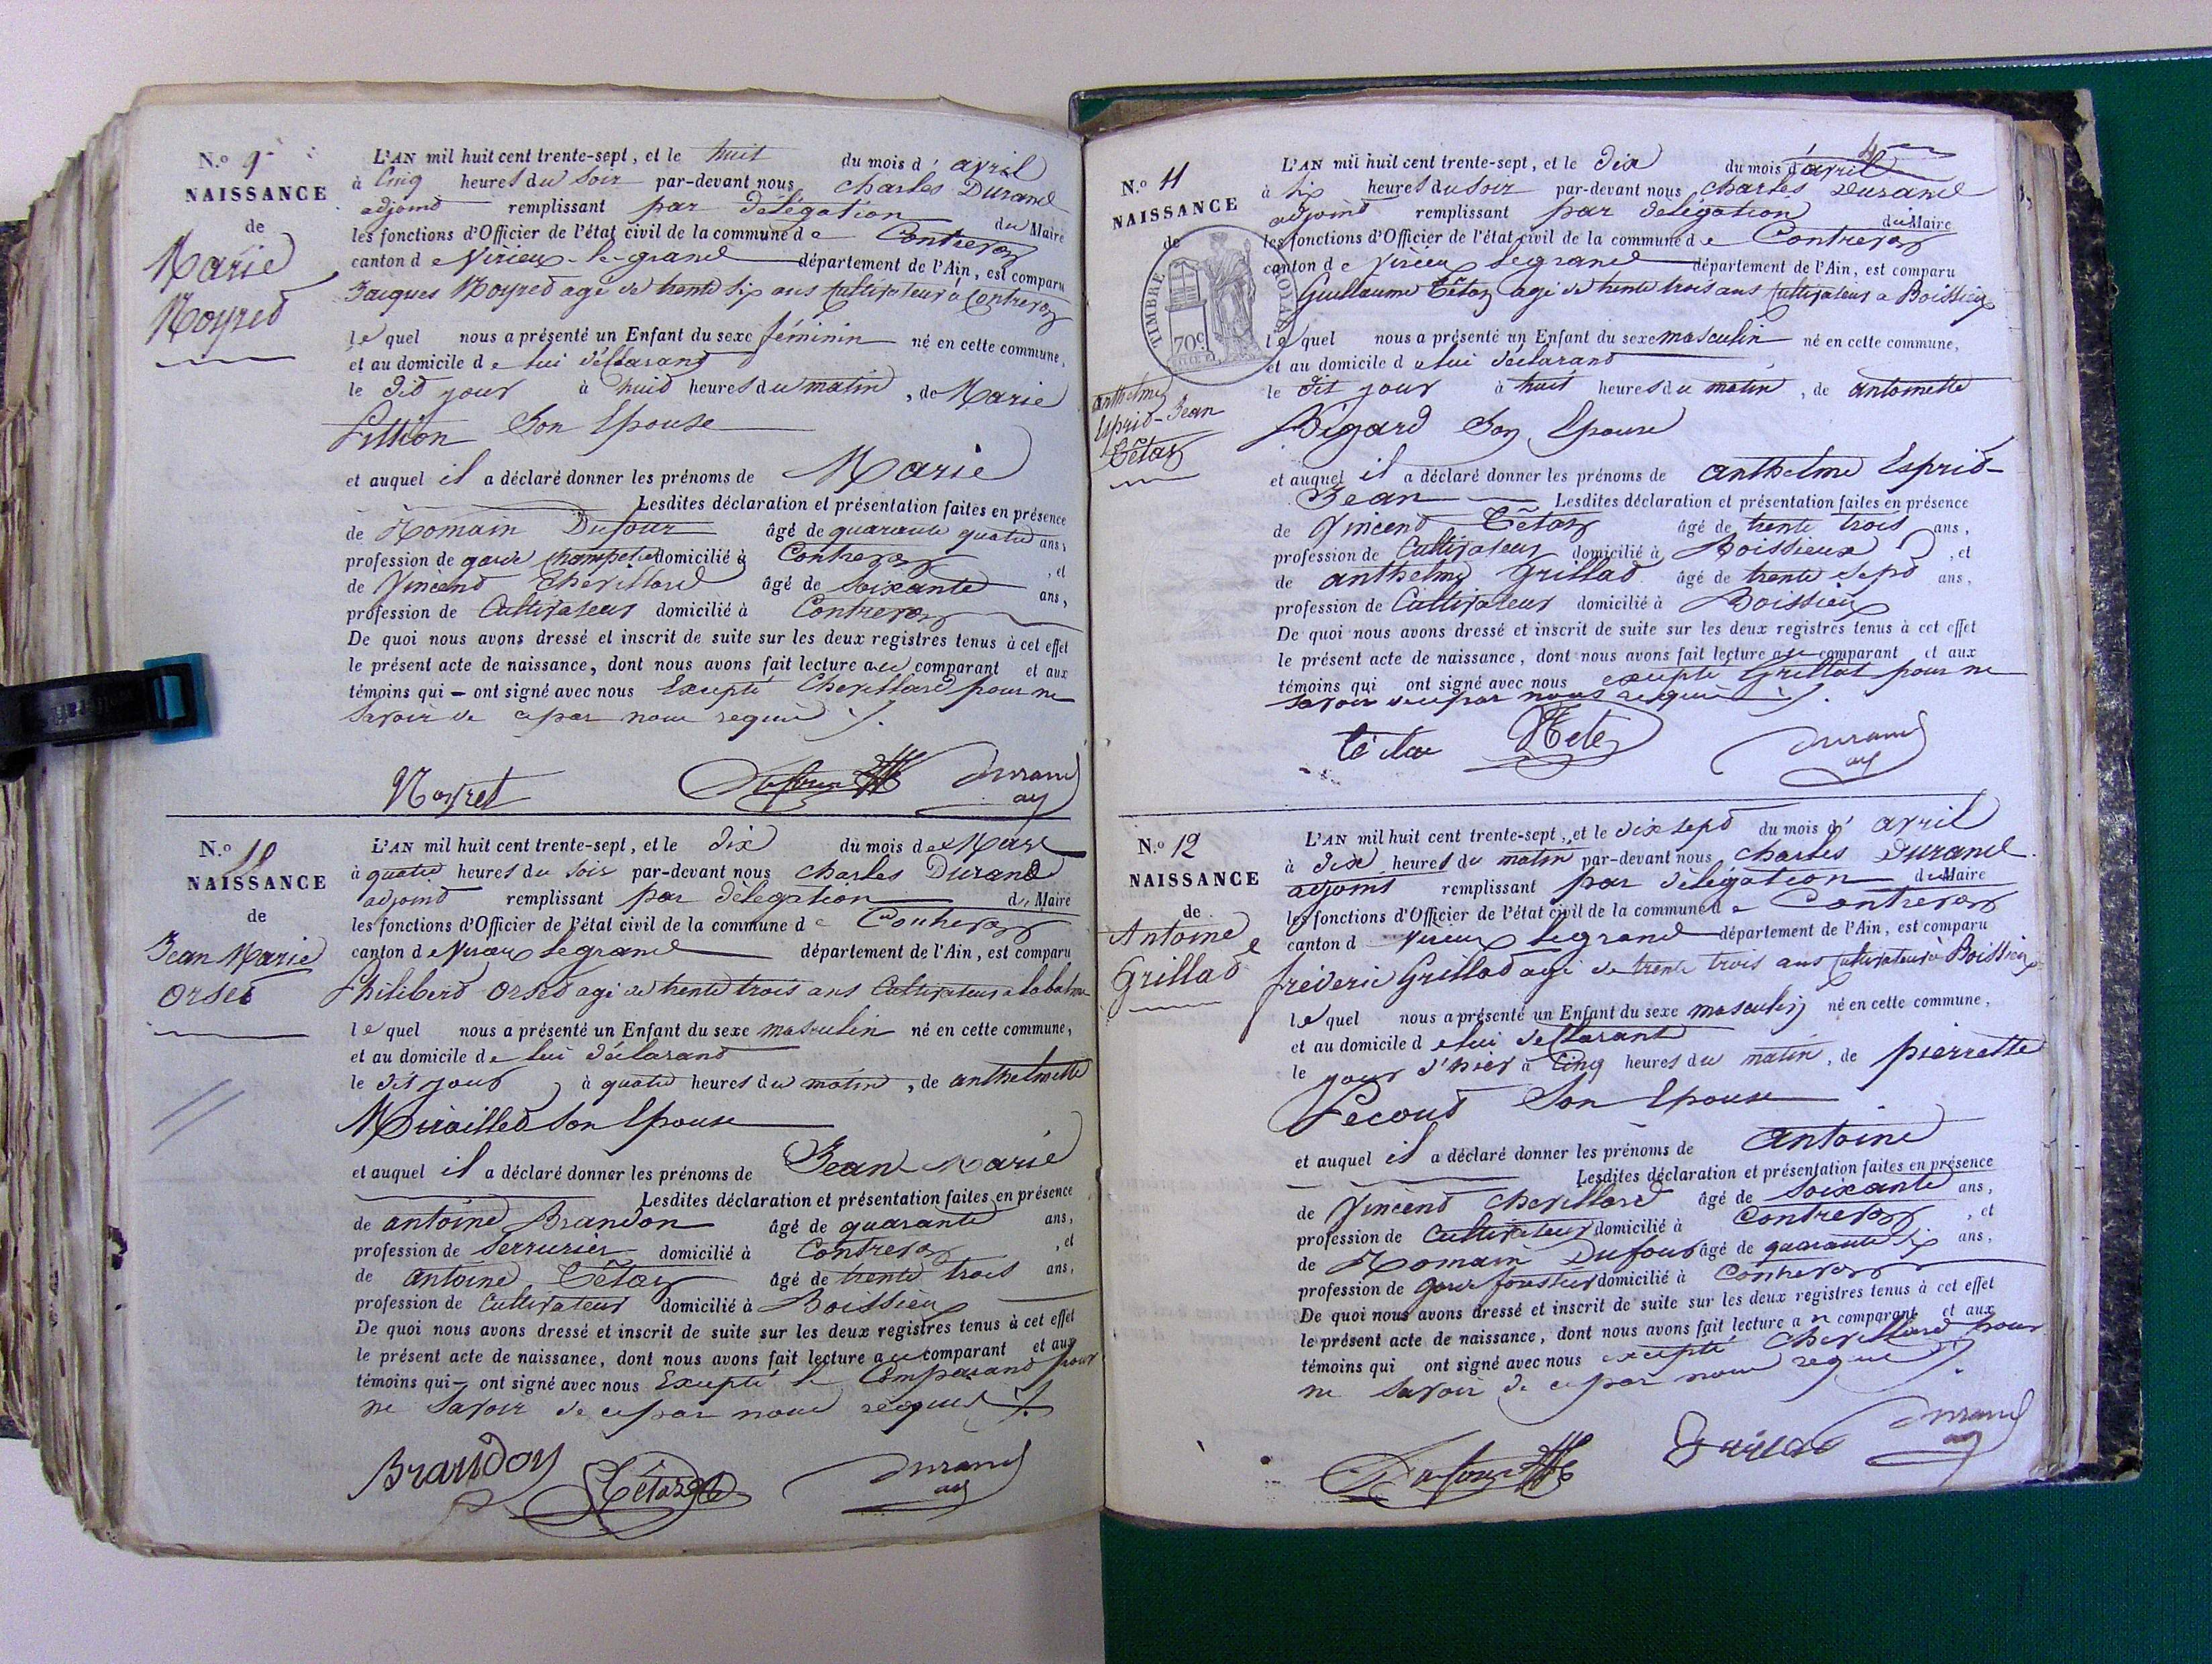 N.º 9
NAISSANCE
de
Marie
Moyred
L'AN mil huit cent trente-sept, et le huit du mois d'avril
à Cinq heures du Soir par-devant nous Charles Durand
adjoint remplissant par délégation du Maire
les fonctions d'Officier de l'état civil de la commune de Contrevoz
canton de Virieu-le-grand département de l'Ain, est comparu
Jacques Moyred agé de trente six ans Cultivateur à Contrevoz
lequel nous a présenté un Enfant du sexe féminin né en cette commune,
et au domicile de lui déclarand
le dit jour à huit heures du matin, de Marie
Son Epouse
et auquel il a déclaré donner les prénoms de Marie
Lesdites déclaration et présentation faites en présence
de Romain Dufour âgé de quarante quatre ans,
profession de garde champetre domicilié à Contrevoz, et
de Vincend Chevillard âgé de Soixante ans,
profession de Cultivateur domicilié à Contrevoz
De quoi nous avons dressé et inscrit de suite sur les deux registres tenus à cet effet
le présent acte de naissance, dont nous avons fait lecture au comparant et aux
témoins qui ont signé avec nous Excepté Chevillard pour ne
Savoir de ce par nous requis ./.
Noyret Dufour Durand
adj
N.º 10
NAISSANCE
de
Jean Marie
Orset
L'AN mil huit cent trente-sept, et le dix du mois de Mars
à quatre heures du Soir par-devant nous Charles Durand
adjoint remplissant par délégation du Maire
les fonctions d'Officier de l'état civil de la commune de Contrevoz
canton de Virieu le grand département de l'Ain, est comparu
Philiberd Orset agé de trente trois ans Cultivateur a labalme
lequel nous a présenté un Enfant du sexe masculin né en cette commune,
et au domicile de lui déclarand
le dit jour à quatre heures du matin, de anthelmette
Mirailled Son Epouse
et auquel il a déclaré donner les prénoms de Jean Marie
Lesdites déclaration et présentation faites en présence
de antoine Brandon âgé de quarante ans,
profession de Serrurier domicilié à Contrevoz, et
de antoine Tétaz âgé de trente trois ans,
profession de Cultivateur domicilié à Boissieu
De quoi nous avons dressé et inscrit de suite sur les deux registres tenus à cet effet
le présent acte de naissance, dont nous avons fait lecture au comparant et aux
témoins qui ont signé avec nous Excepté le Comparand pour
ne Savoir de ce par nous requis ./.
Brandon Tétaz Durand
adj
N.º 11
NAISSANCE
de
TIMBRE ROYAL
70c
anthelme
Esprid-Jean
Tétaz
L'AN mil huit cent trente-sept, et le Dix du mois d'avril
à Six heures du soir par-devant nous Charles Durand
adjoind remplissant par délégation du Maire
les fonctions d'Officier de l'état civil de la commune de Contrevoz
canton de Virieu legrand département de l'Ain, est comparu
Guillaume Tétaz agé de trente trois ans Cultivateur a Boissieu
lequel nous a présenté un Enfant du sexe masculin né en cette commune,
et au domicile de lui déclarand
le dit jour à huit heures du matin, de antoinette
Bigard Son Epouse
et auquel il a déclaré donner les prénoms de anthelme Esprid-
Jean Lesdites déclaration et présentation faites en présence
de Vincend Tétaz âgé de trente trois ans,
profession de Cultivateur domicilié à Boissieux, et
de anthelme Grillad âgé de trente Sept ans,
profession de Cultivateur domicilié à Boissieu
De quoi nous avons dressé et inscrit de suite sur les deux registres tenus à cet effet
le présent acte de naissance, dont nous avons fait lecture au comparant et aux
témoins qui ont signé avec nous excepté Grillat pour ne
savoir de ce par nous requis ./.
Durand
adj
N.º 12
NAISSANCE
de
Antoine
Grillad
L'AN mil huit cent trente-sept, et le dix sept du mois d'avril
à dix heures du matin par-devant nous Charles Durand
adjoint remplissant par délégation du Maire
les fonctions d'Officier de l'état civil de la commune de Contrevoz
canton de Virieu legrand département de l'Ain, est comparu
fréderic Grillad agé de trente trois ans Cultivateur à Boissieu
lequel nous a présenté un Enfant du sexe masculin né en cette commune,
et au domicile de lui déclarant
le jour d'hier à Cinq heures du matin, de pierrette
Pecoud Son Epouse
et auquel il a déclaré donner les prénoms de antoine
Lesdites déclaration et présentation faites en présence
de Vincend Chevillard âgé de Soixante ans,
profession de Cultivateur domicilié à Contrevoz, et
de Romain Dufour âgé de quarante Six ans,
profession de garde forestier domicilié à Contrevoz
De quoi nous avons dressé et inscrit de suite sur les deux registres tenus à cet effet
le présent acte de naissance, dont nous avons fait lecture au comparant et aux
témoins qui ont signé avec nous excepté Chevillard pour
ne Savoir de ce par nous requis ./.
Dufour Durand
adj